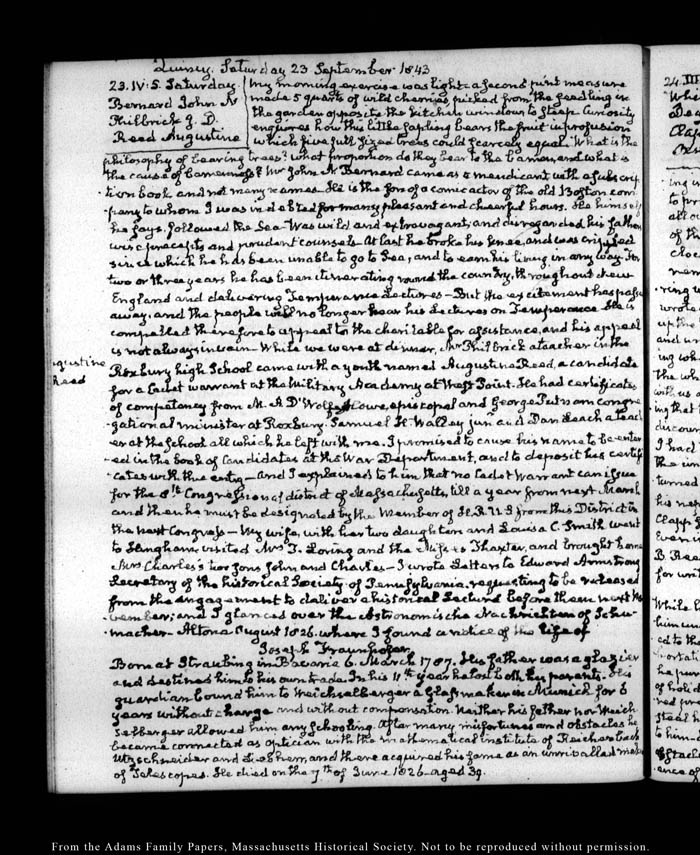 Quincy. Saturday 23 September 1843
23. IV:5. Saturday.
Bernard John N
Philbrick J. D.
Reed Augustine
My morning exercise was light—a second pint measure
made 5 quarts of wild cherries picked from the seedling in
the garden opposite the kitchen window to steep. Curiosity
enquires how this little sapling bears the fruit in profusion
which five full sized trees could scarcely equal. What is the
philosophy of bearing trees? what proportion do they bear to the barren, and what is
the cause of barrenness? Mr John N Bernard came as a mendicant with a subscrip
tion book and not many names. He is the son of a comic actor of the old Boston com
pany to whom I was indebted for many pleasant and cheerful hours. He himself
he says, followed the Sea—Was wild and extravagant, and disregarded his father's
wise precepts and prudent counsels. At last he broke his knee, and was crippled
since which he has been unable to go to Sea, and to earn his living in any way. For
two or three years he has been itinerating round the country, throughout New
England and delivering Temperance Lectures—But the excitement has passed
away, and the people will no longer hear his Lectures on Temperance. He is
compelled therefore to appeal to the charitable for assistance, and his appeal
is not always in vain. While we were at dinner, Mr Philbrick a teacher in the
gustine
Reed
Roxbury high School came with a youth named Augustine Reed, a candidate
for a Cadet warrant at the Military Academy at West Point. He had certificates
of competency from M. A. D'Wolfe Howe, episcopal and George Putnam congre
gational minister at Roxbury. Samuel H. Walley junr and Dan Leach a teach
er at the school all which he left with me. I promised to cause his name to be enter
ed in the book of Candidates at the War Department, and to deposit his certifi
cates with the entry—and I explained to him that no Cadet Warrant can issue
for the 8th Congressional district of Massachusetts, till a year from next March
and then he must be designated by the Member of H.R.U.S from this District in
the next Congress—My wife, with her two daughters and Louisa C. Smith went
to Hingham, visited Mrs T. Loring and the Miss's Thaxter, and brought home
Mrs Charles's two sons John and Charles—I wrote Letters to Edward Armstrong
Secretary of the historical Society of Pennsylvania, requesting to be released
from the engagement to deliver a historical Lecture before them next No
vember; and I glanced over the Astronomische Nachrichten of Schu
macher—Altona August 1826. where I found a notice of the life of
Joseph Fraunhofer.
Born at Straubing in Bavaria 6. March 1787. His father was a glazier
and destined him to his own trade. In his 11th year he lost both his parents. His
guardian bound him to Weichselberger a Glass maker in Munich for 6
years without charge and without compensation. Neither his father nor Weich
selberger allowed him any schooling. After many misfortunes and obstacles he
became connected as optician with the mathematical institute of Reichenbach
Utzschneider and Liebherr, and there acquired his fame as an unrivalled maker
of Telescopes. He died on the 7th of June 1826. aged 39.
24. III
From the Adams Family Papers, Massachusetts Historical Society. Not to be reproduced without permission.